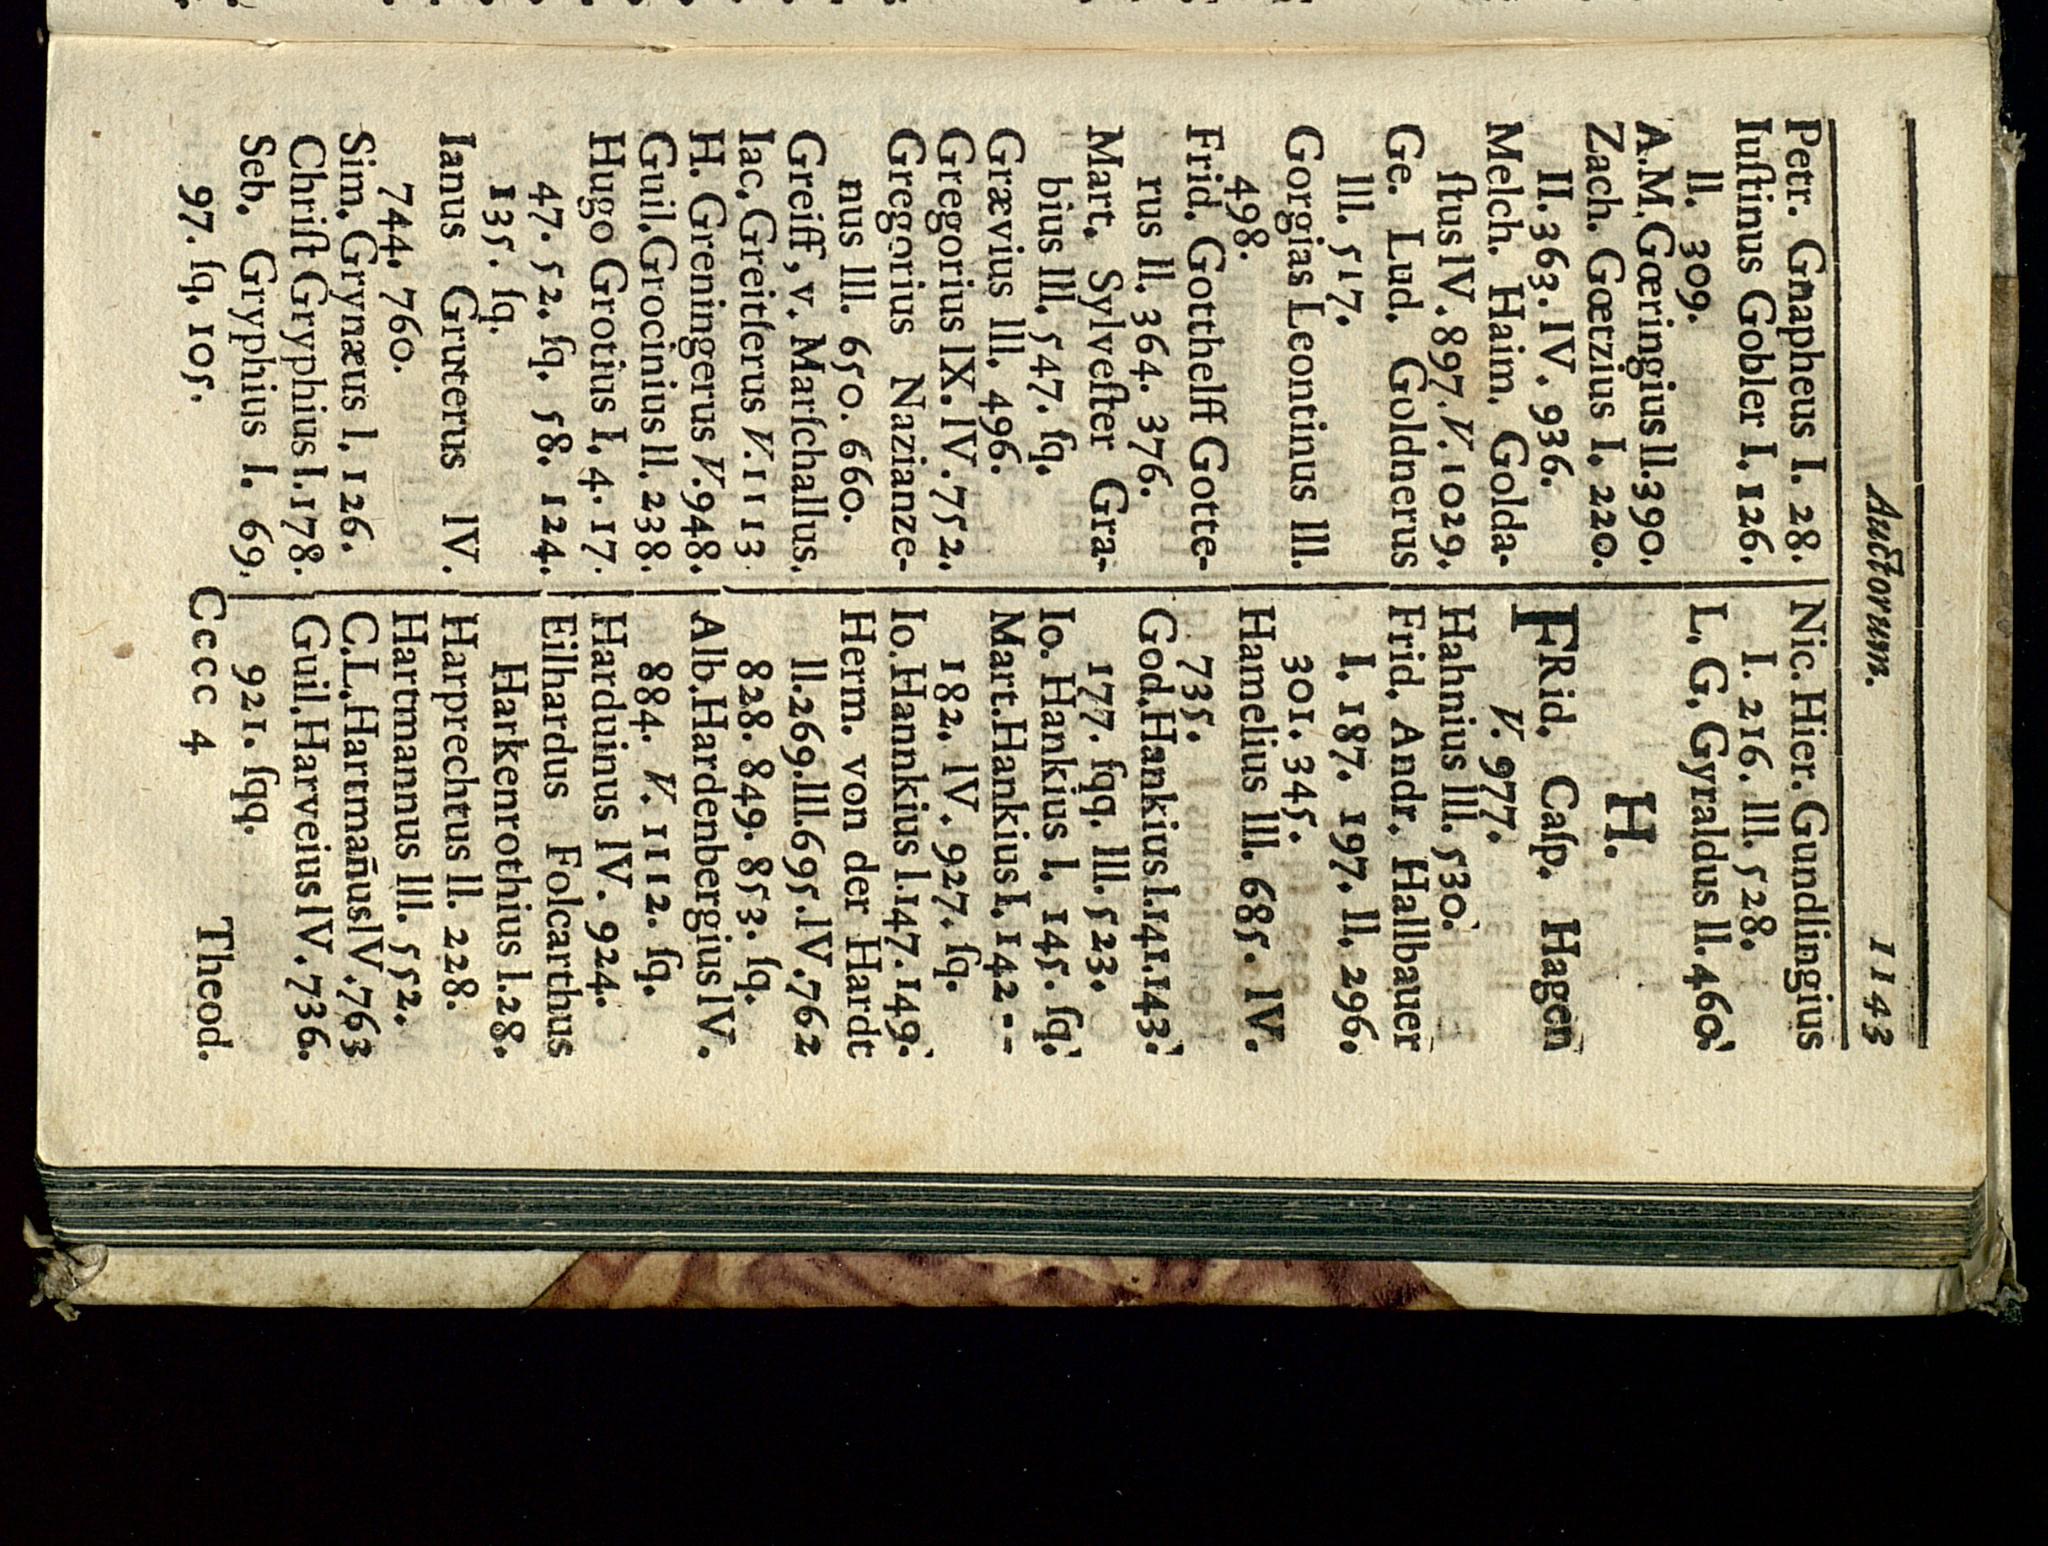 Auctorum. 1143
Petr. Gnapheus I. 28.
Iuſtinus Gobler I. 126.
II. 309.
A.M.Gœringius II.390.
Zach. Gœtzius I. 220.
II. 363. IV. 936.
Melch. Haim. Golda-
ſtus IV. 897. V. 1029.
Ge. Lud. Goldnerus
III. 517.
Gorgias Leontinus III.
498.
Frid. Gotthelff Gotte-
rus II. 364. 376.
Mart. Sylveſter Gra-
bius III. 547. ſq.
Grævius III. 496.
Gregorius IX. IV. 752.
Gregorius Nazianze-
nus III. 650. 660.
Greiff, v. Marſchallus.
Iac. Greitſerus V. 1113
H. Greningerus V. 948.
Guil. Grocinius II. 238.
Hugo Grotius I. 4. 17.
47. 52. ſq. 58. 124.
135. ſq.
Ianus Gruterus IV.
744. 760.
Sim. Grynæus I. 126.
Chriſt Gryphius I. 178.
Seb. Gryphius I. 69.
97. ſq. 105.
Nic. Hier. Gundlingius
I. 216. III. 528.
L. G. Gyraldus II. 460.
H.
FRid. Caſp. Hagen
V. 977.
Hahnius III. 530.
Frid. Andr. Hallbauer
I. 187. 197. II. 296.
301. 345.
Hamelius III. 685. IV.
735.
God. Hankius I. 141. 143.
177. ſqq. III. 523.
Io. Hankius I. 145. ſq.
Mart. Hankius I. 142--
182. IV. 927. ſq.
Io. Hannkius I. 147. 149.
Herm. von der Hardt
II. 269. III. 695. IV. 762
828. 849. 853. ſq.
Alb. Hardenbergius IV.
884. V. 1112. ſq.
Harduinus IV. 924.
Eilhardus Folcarthus
Harkenrothius I. 28.
Harprechtus II. 228.
Hartmannus III. 552.
C.L. Hartmañus IV. 763
Guil. Harveius IV. 736.
921. ſqq.
Cccc 4 Theod.